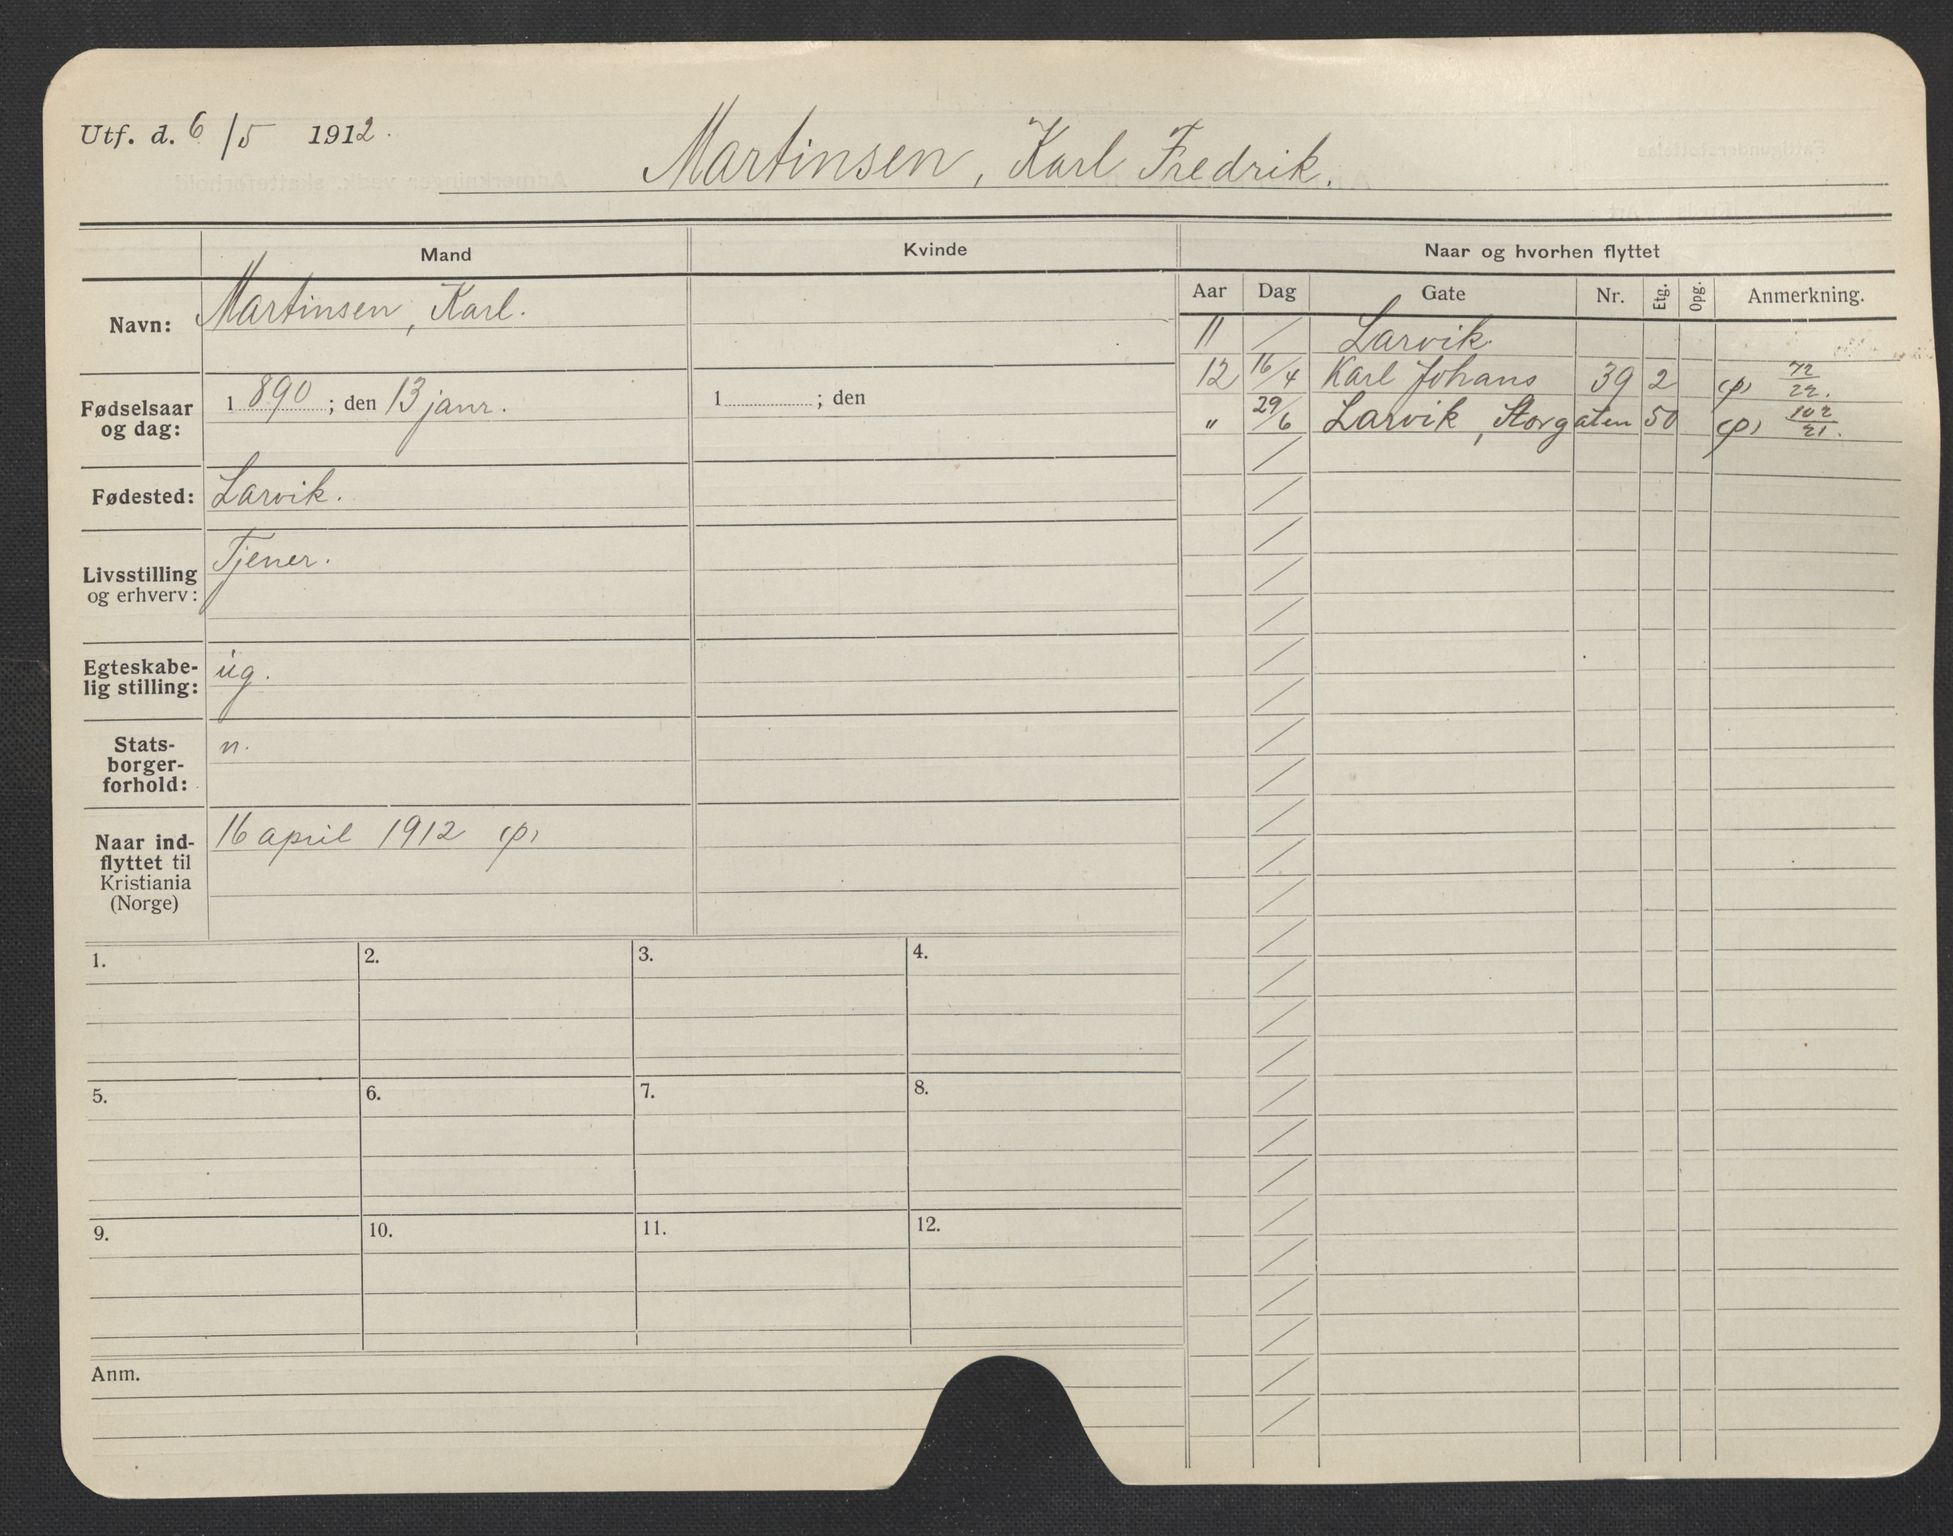 Utf. d. 6/5 1912.
Martinsen, Karl Fredrik.
Mand
Kvinde
Naar og hvorhen flyttet
Navn: Martinsen, Karl.
Fødselsaar og dag: 1 890 ; den 13 janr. 1 ; den
Fødested: Larvik.
Livsstilling og erhverv: Tjener.
Egteskabe-
lig stilling: ug.
Stats-
borger-
forhold: n.
Naar ind-
flyttet til
Kristiania
(Norge)
16 april 1912 (p)
Aar Dag Gate Nr. Etg. Opg. Anmerkning.
11 / Larvik.
12 16/4 Karl Johans 39 2 (p) 72/22.
" 29/6 Larvik, Storgaten 50 (p) 102/21.
1. 2. 3. 4.
5. 6. 7. 8.
9. 10. 11. 12.
Anm.